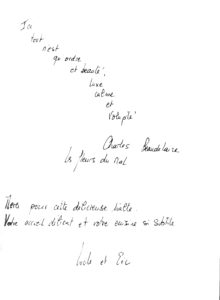 Ici
tout
n'est
qu'ordre
et beauté,
luxe
calme
et
volupté
Charles Baudelaire
Les fleurs du mal
Merci pour cette délicieuse halte.
Votre accueil et votre cuisine si subtile
et Eric